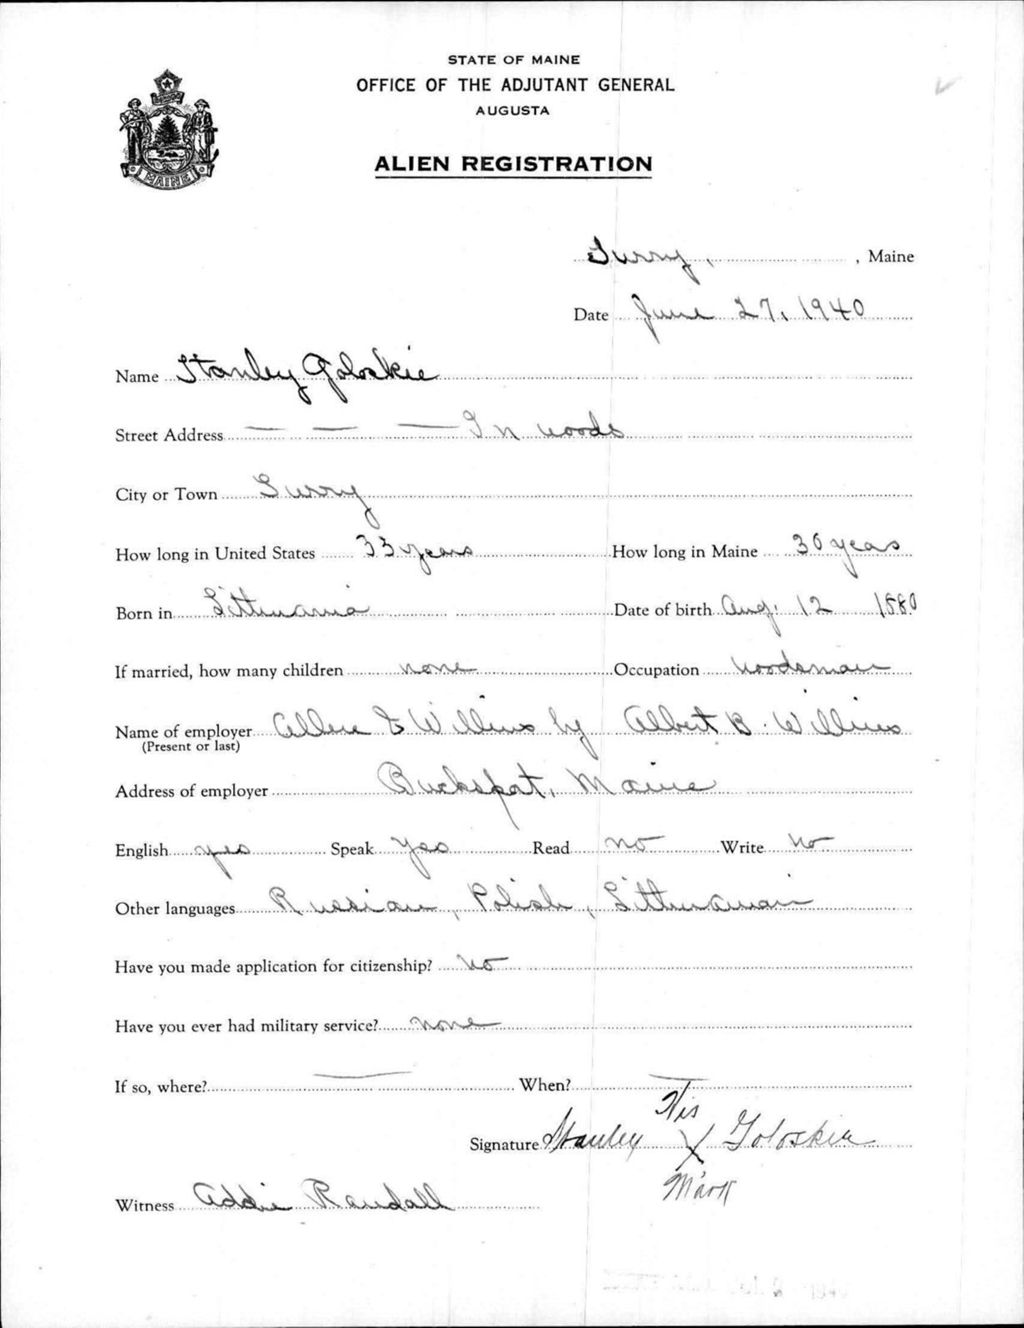 STATE OF MAINE
OFFICE OF THE ADJUTANT GENERAL
AUGUSTA
MAINE
ALIEN REGISTRATION
Surry, , Maine
Date June 27, 1940
Name Stanley Goloskie
Street Address — — — In woods
City or Town Surry
How long in United States 33 years How long in Maine 30 years
Born in Lithuania Date of birth Aug. 12 1880
If married, how many children none Occupation Woodsman
Name of employer by Albert B.
(Present or last)
Address of employer Bucksport, Maine
English yes Speak yes Read no Write no
Other languages Russian, Polish, Lithuanian
Have you made application for citizenship? no
Have you ever had military service? none
If so, where? — When? —
His
Signature Stanley X Goloskie
Mark
Witness Addie Randall